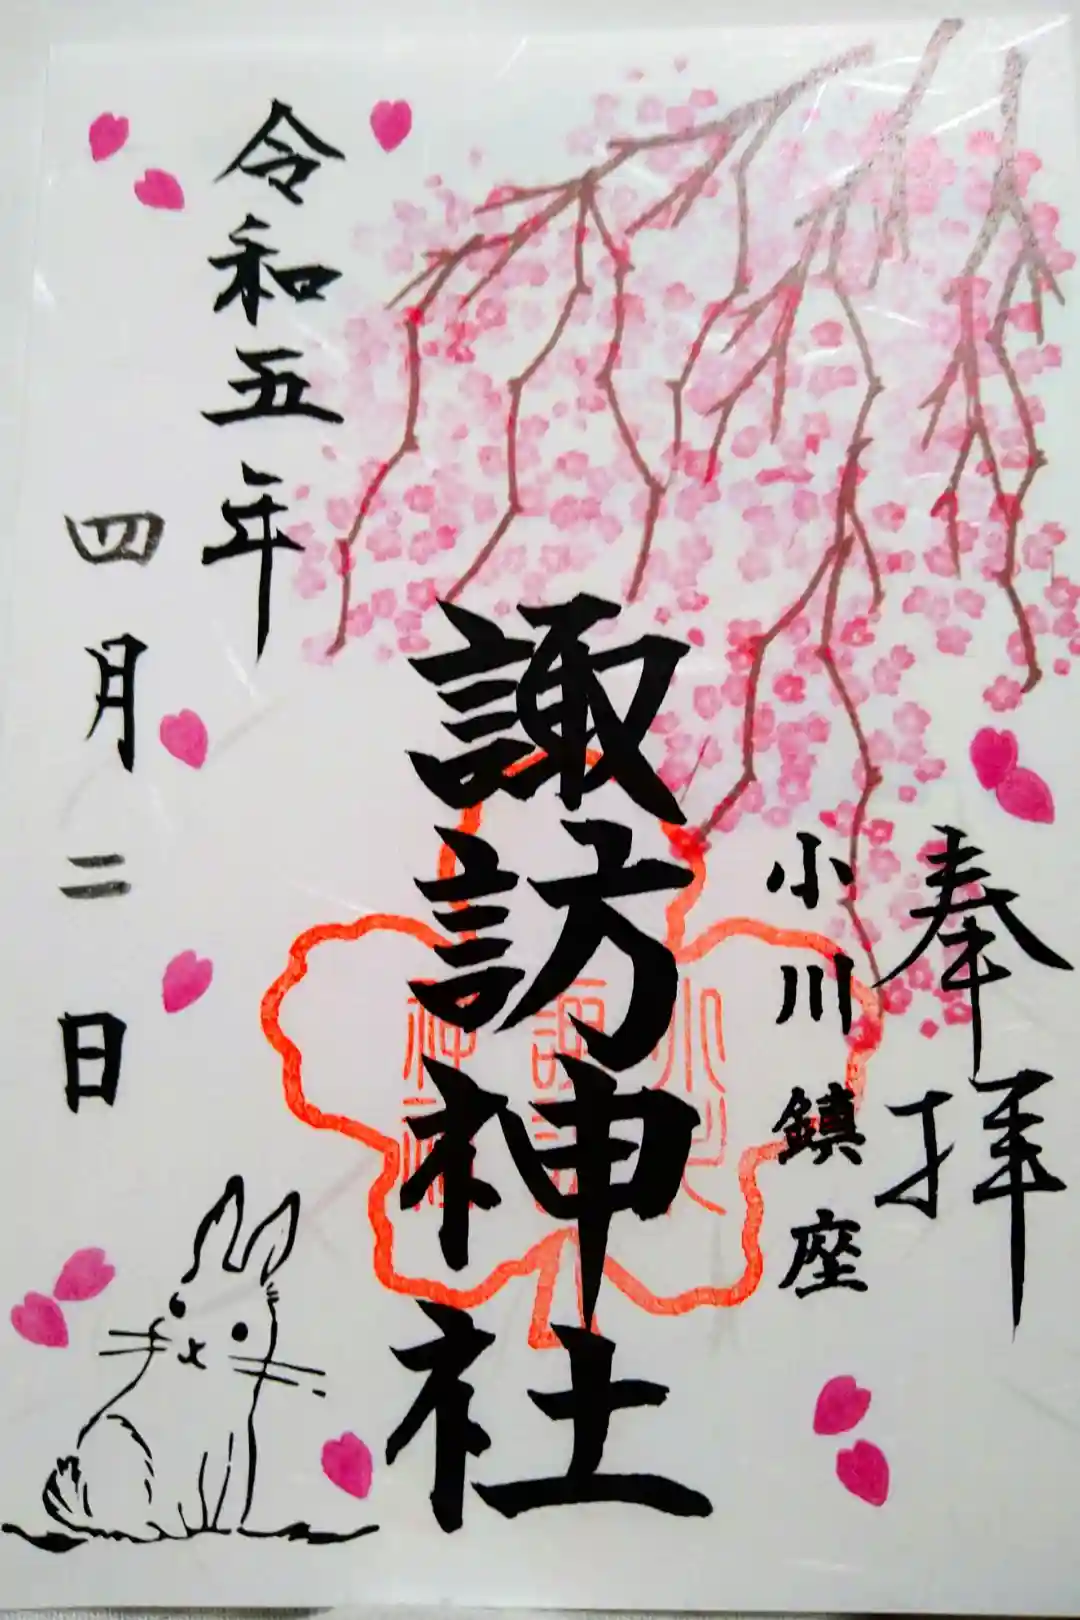 奉拝
小川鎮座
諏訪神社
小川
諏訪
神社
令和五年
四月二日